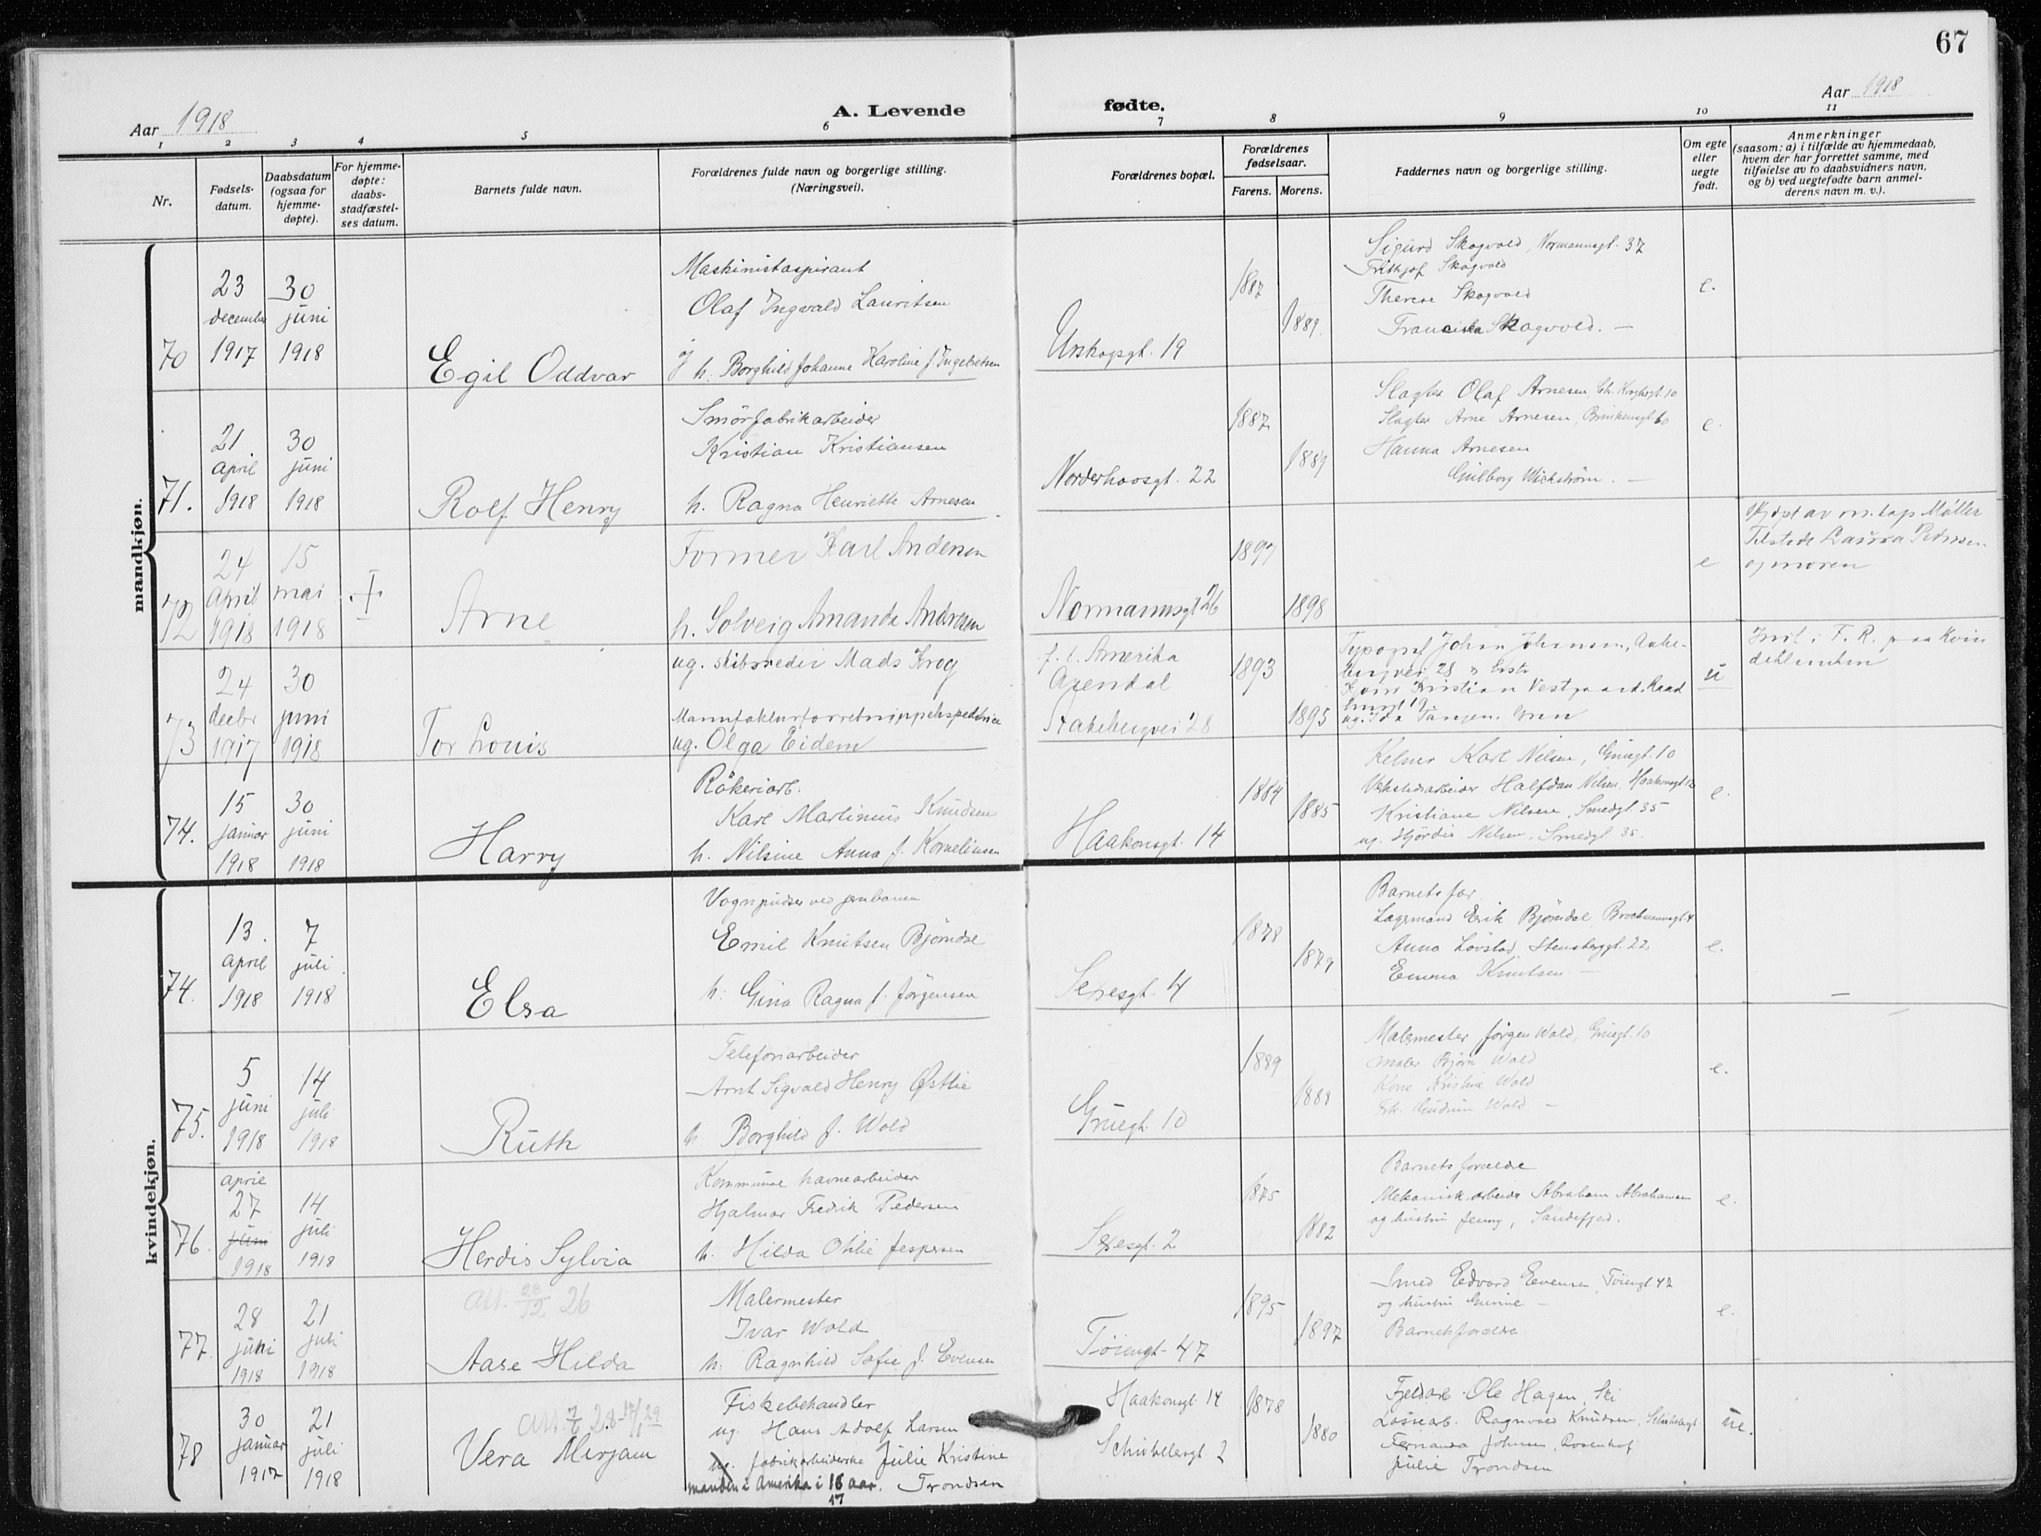 67
Aar 1918
A. Levende
fødte.
Aar 1918
1 2 3 4 5 6 7 8 9 10 11
Nr.
Fødsels-
datum.
Daabsdatum
(ogsaa for
hjemme-
døpte).
For hjemme-
døpte:
daabs-
stadfæstel-
ses datum.
Barnets fulde navn.
Forældrenes fulde navn og borgerlige stilling.
(Næringsvei).
Forældrenes bopæl.
Forældrenes
fødselsaar.
Farens. Morens.
Faddernes navn og borgerlige stilling.
Om egte
eller
uegte
født.
Anmerkninger
(saasom: a) i tilfælde av hjemmedaab,
hvem der har forrettet samme, med
tilføielse av to daabsvidners navn,
og b) ved uegtefødte barn anmel-
derens navn m. v.).
mandkjøn.
70
23
december
1917
30
juni
1918
Egil Oddvar
Maskinistaspirant
Olaf Ingvald Lauritsen
h. Borghild Johanne Karoline f. Ingebretsen
Urskogsgt. 19
1887
1889.
Sigurd Skogvold, Normannsgt. 37
Frithjof Skogvold
Therese Skogvold
Skogvold.
e.
71.
21
april
1918
30
juni
1918
Rolf Henry
Smörfabrikarbeider
Kristian Kristiansen
h. Ragna Henriette Arnesen
Norderhovsgt. 22
1887
1889
Slagter Olaf Arnesen, Chr. Kroghsgt. 10
Slagter Arne Arnesen,
Hanna Arnesen
Gulborg Wickstrøm.
e.
72
24
april
1918
15
mai
1918
Arne
Former Karl Andersen
h. Solveig Amanda Andersen
Normannsgt 26
1897
1898
e
Møller
Tilstede Laura Pedersen
og moren
73
24
decbr
1917
30
juni
1918
Tor Louis
ug. skibsreder Mads Krog
ug. Olga Eidem
f. t. Amerika
Arendal
28
1893
1895
Typograf Johan Johansen, Aake-
bergvei 28
Kristian Vestgaard,
ug. Ida Tangen,
u
74.
15
januar
1918
30
juni
1918
Harry
Rökeriarb.
Karl Martinius Knudsen
h. Nilsine Anna f. Kornelinsen
Haakonsgt. 14
1884
1885
Kelner Karl Nilsen, Gruegt. 10
Verkstedsarbeider Halfdan Nilsen, Haakonsgt 12
Kristiane Nilsen, Smedgt. 35
ug. Hjördis Nilsen, Smedgt. 35.
e.
kvindekjøn.
74.
13.
april
1918
7
juli
1918
Elsa
Vognpudser ved jernbanen
Emil Knutsen Bjørndal
h. Gina Ragna f. Jørgensen
4
1878
1879
Barnets far
Lagermand Erik Bjørndal
Anna Løvstad, Stensberggt. 22
Emma Knutsen
e.
75.
5
juni
1918
14
juli
1918
Ruth
Telefonarbeider
Arnt Sigvald Henry Østlie
h. Borghild f. Wold
Gruegt. 10
1889
1888
Malermester Jörgen Wold, Gruegt. 10
maler Bjørn Wold
Kone Kristine Wold
frk. Gudrun Wold
e.
76.
april
27
juni
1918
14
juli
1918
Herdis Sylvia
Kommunal havnearbeider
Hjalmar Fredrik Pedersen
h. Hilda Othlie Jespersen
2
1875
1882
Barnets forældre
Mekanisk arbeider Abraham Abrahamsen
og hustru Jenny, Sandefjord.
e.
77
28
juni
1918
21
juli
1918
Att. 28/12 26
Aase Hilda
Malermester
Ivar Wold
h. Ragnhild Sofie f. Evensen
Töiengt. 47
1895
1897
Smed Edvard Evensen, Töiengt 47
og hustru Gurine
Barnets forældre
e.
78
30
januar
1917
21
juli
1918
Att 7/6 28
Vera Mirjam
Fiskebehandler
ug. Hans Adolf Larsen
ug. fabrikarbeiderske Julie Kristine
manden i Amerika i 16 aar. Trondsen
17
Haakonsgt 14
Schübelersgt 2
1878
1880
Fjeldarb. Ole Hagen, Ski
Lossearb. Ragnvald Knudsen,
Fernanda Johnsen, Rosenhof
Julie Trondsen
ue.